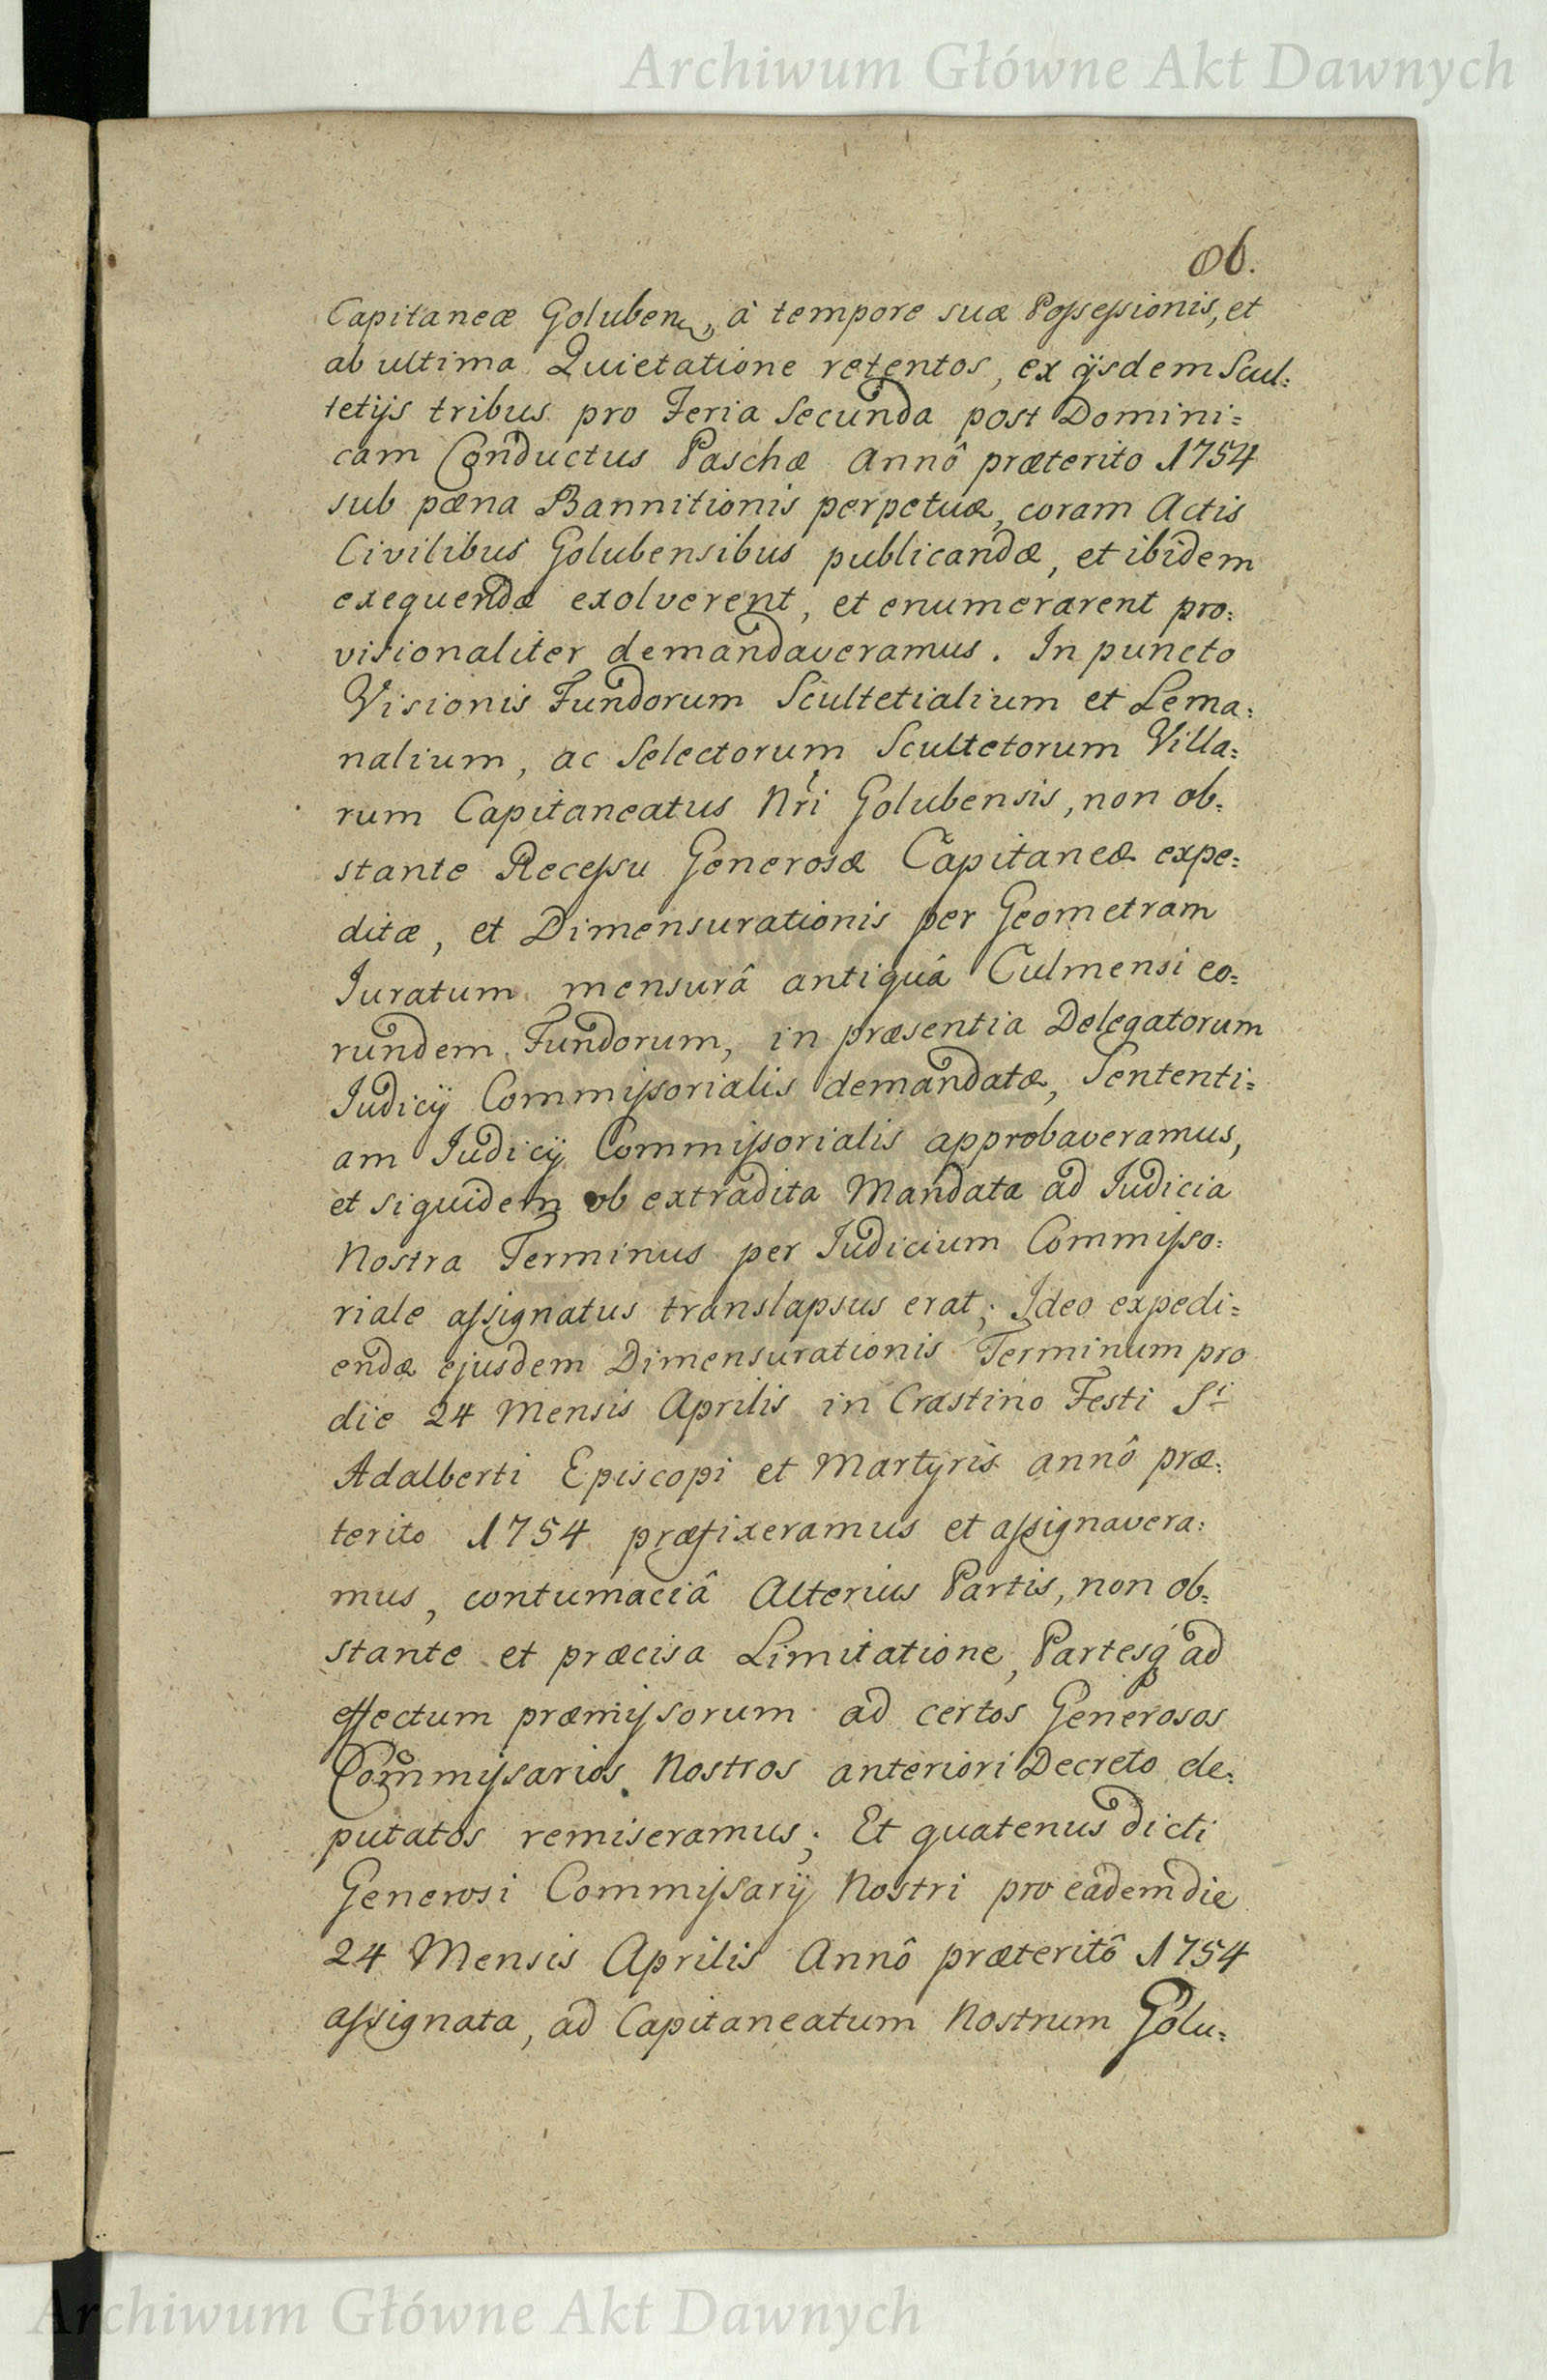 Archiwum Główne Akt Dawnych
86.
Capitaneæ Goluben, à tempore suæ Possessionis, et
ab ultima Quietatione retentos, ex ijsdem Scul=
tetijs tribus pro Feria Secunda post Domini=
cam Conductus Paschæ Annô præterito 1754
sub pæna Bannitionis perpetuæ, coram Actis
Civilibus Golubensibus publicandæ, et ibidem
exequendæ exolverent, et enumerarent pro=
visionaliter demandaveramus. In puncto
Visionis Fundorum Scultetialium et Lema=
nalium, ac Selectorum Scultetorum Villa=
rum Capitaneatus Nri Golubensis, non ob=
stante Recessu Generosæ Capitaneæ expe=
ditæ, et Dimensurationis per Geometram
Juratum mensurâ antiquâ Culmensi eo=
rundem Fundorum, in præsentia Delegatorum
Judicij Commissorialis demandatæ, Sententi=
am Judicij Commissorialis approbaveramus,
et siquidem ob extradita Mandata ad Judicia
Nostra Terminus per Judicium Commisso=
riale assignatus translapsus erat; Ideo expedi=
endæ ejusdem Dimensurationis Terminum pro
die 24 Mensis Aprilis in Crastino Festi Sti
Adalberti Episcopi et Martyris annô præ=
terito 1754 præfixeramus et assignavera=
mus, contumaciâ Alterius Partis, non ob=
stante et præcisa Limitatione, Partesq ad
effectum præmissorum ad certos Generosos
Commissarios Nostros anteriori Decreto de=
putatos remiseramus; Et quatenus dicti
Generosi Commissarij Nostri pro eadem die
24 Mensis Aprilis Annô præteritô 1754
assignata, ad Capitaneatum Nostrum Golu=
Archiwum Główne Akt Dawnych